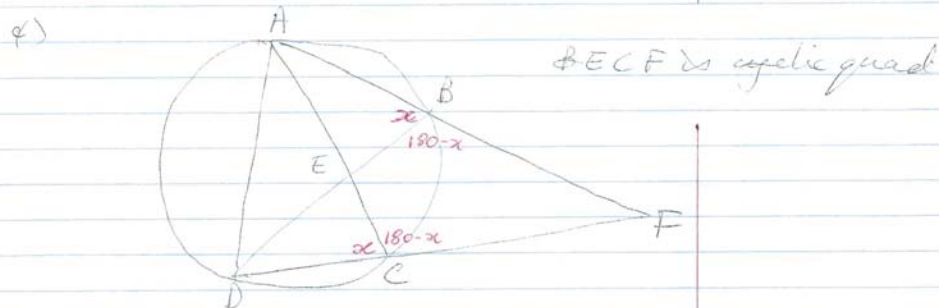 c)
A
BECF is cyclic quad
B
x
180-x
E
F
x 180-x
C
D